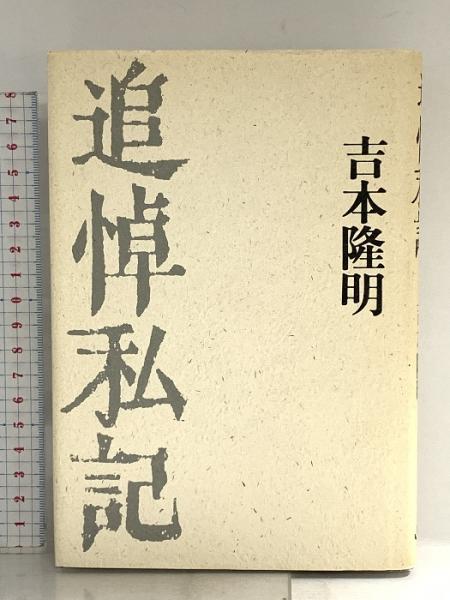 吉本隆明
追悼私記